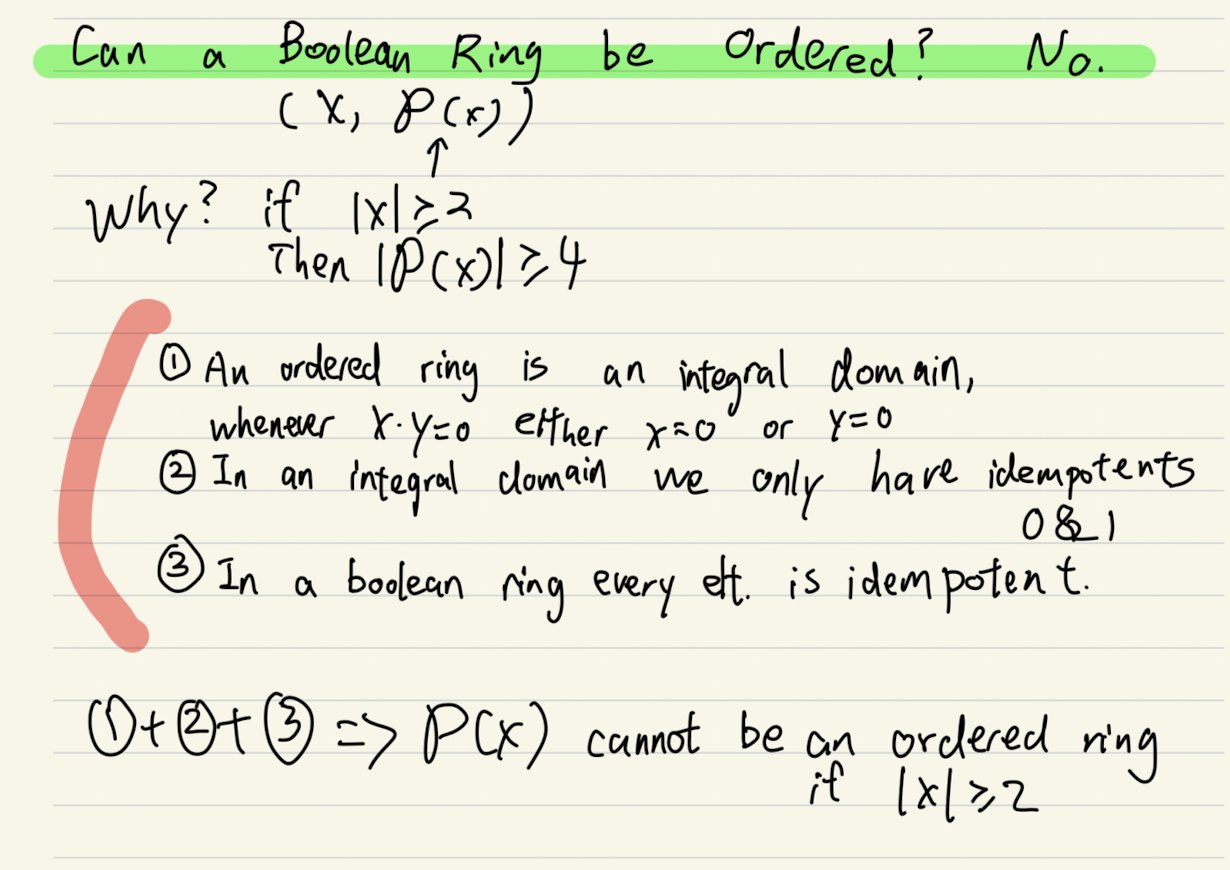 Can a Boolean Ring be Ordered? No.
(X, P(x))
↑
Why? if |X| ≥ 2
Then |P(x)| ≥ 4
① An ordered ring is an integral domain,
whenever x·y=0 either x=0 or y=0
② In an integral domain we only have idempotents
0 & 1
③ In a boolean ring every elt. is idempotent.
①+②+③ => P(x) cannot be an ordered ring
if |X| ≥ 2